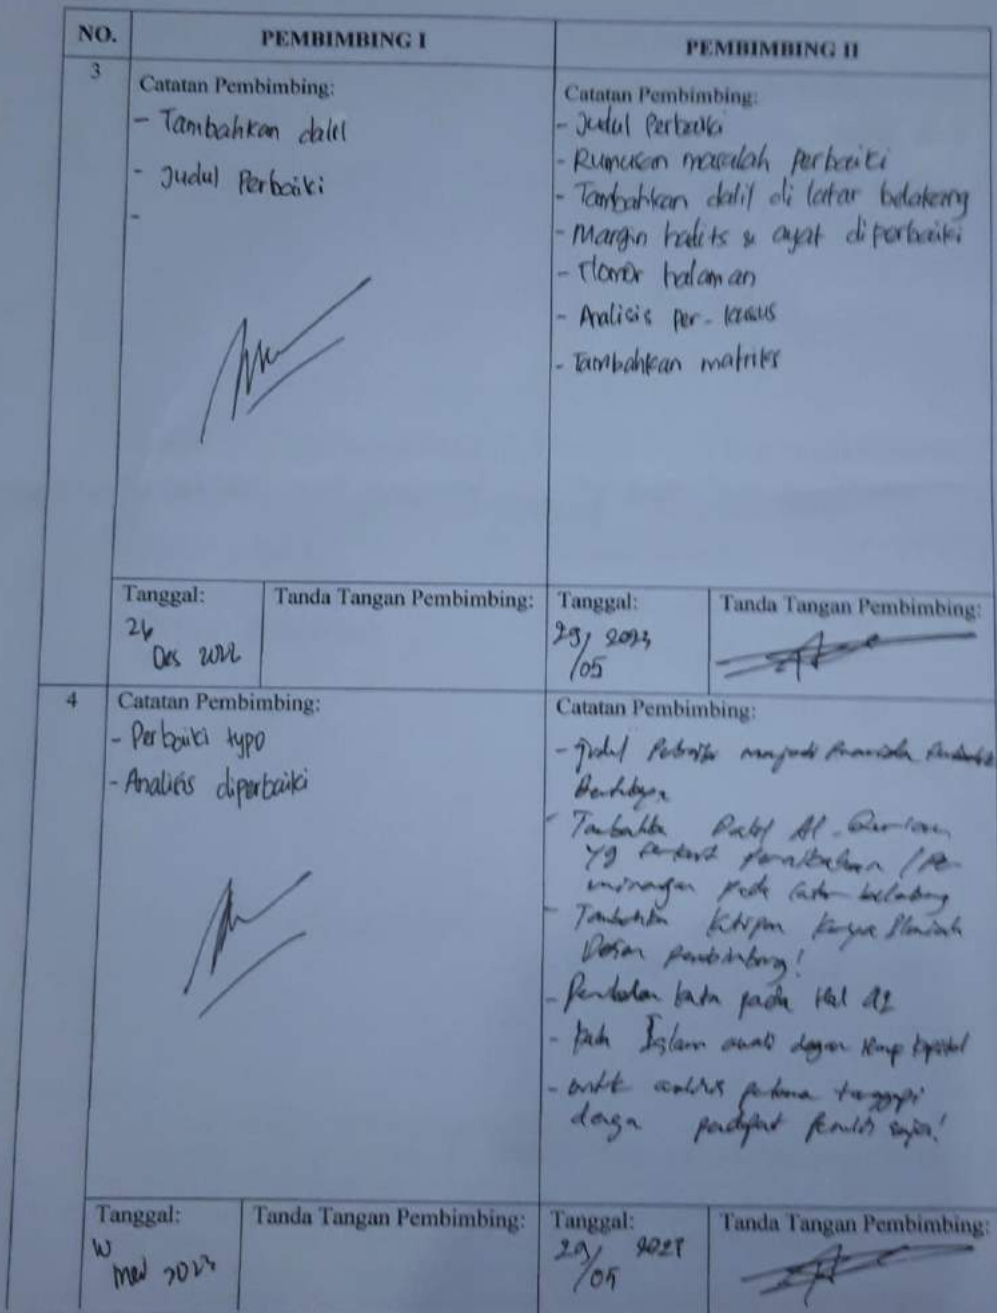 NO.
PEMBIMBING I
PEMBIMBING II
3
Catatan Pembimbing:
- Tambahkan dalil
- Judul Perbaiki
-
Catatan Pembimbing:
- Judul Perbaiki
- Rumusan masalah perbaiki
- Tambahkan dalil di latar belakang
- Margin hadits & ayat diperbaiki
- Nomor halaman
- Analisis per-kasus
- Tambahkan matriks
Tanggal:
Des 2022
Tanda Tangan Pembimbing:
Tanggal:
29/05 2023
Tanda Tangan Pembimbing:
4
Catatan Pembimbing:
- Perbaiki typo
- Analisis diperbaiki
Catatan Pembimbing:
- Judul
- Al-Qur'an
yg
pada latar belakang
- Karya Ilmiah
Dosen pembimbing!
- kata pada Hal
- kata Islam awali dengan kapital
- untuk analisis pertama tanggapi
dengan pendapat penulis saja!
Tanggal:
Mei 2023
Tanda Tangan Pembimbing:
Tanggal:
29/05
Tanda Tangan Pembimbing: